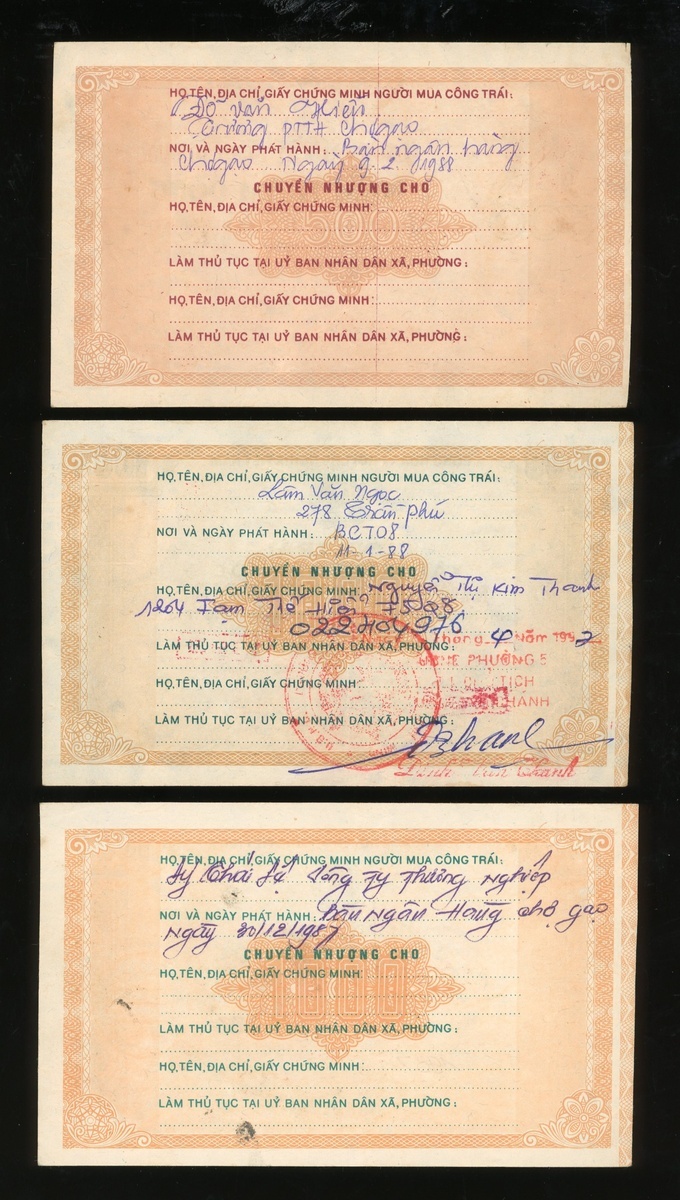 HỌ, TÊN, ĐỊA CHỈ, GIẤY CHỨNG MINH NGƯỜI MUA CÔNG TRÁI:
Đỗ văn Hiền
Trường PTTH Chợgạo
NƠI VÀ NGÀY PHÁT HÀNH: Bàn ngân hàng
Chợgạo Ngày 9.2.1988
CHUYỂN NHƯỢNG CHO
HỌ, TÊN, ĐỊA CHỈ, GIẤY CHỨNG MINH:
500
LÀM THỦ TỤC TẠI UỶ BAN NHÂN DÂN XÃ, PHƯỜNG:
HỌ, TÊN, ĐỊA CHỈ, GIẤY CHỨNG MINH:
LÀM THỦ TỤC TẠI UỶ BAN NHÂN DÂN XÃ, PHƯỜNG:
HỌ, TÊN, ĐỊA CHỈ, GIẤY CHỨNG MINH NGƯỜI MUA CÔNG TRÁI:
Lâm Văn Ngọc
278 Trần Phú
NƠI VÀ NGÀY PHÁT HÀNH: BCT08
11-1-88
CHUYỂN NHƯỢNG CHO
HỌ, TÊN, ĐỊA CHỈ, GIẤY CHỨNG MINH: Nguyễn Thị Kim Thoanh
1204 F5Q8
022404976
LÀM THỦ TỤC TẠI UỶ BAN NHÂN DÂN XÃ, PHƯỜNG: tháng 4 năm 1992
PHƯỜNG 5
HỌ, TÊN, ĐỊA CHỈ, GIẤY CHỨNG MINH: TỊCH
LÀM THỦ TỤC TẠI UỶ BAN NHÂN DÂN XÃ, PHƯỜNG:
HỌ, TÊN, ĐỊA CHỈ, GIẤY CHỨNG MINH NGƯỜI MUA CÔNG TRÁI:
Lý Công Ty Thương Nghiệp
NƠI VÀ NGÀY PHÁT HÀNH: Bàn Ngân Hàng chợ gạo
Ngày 30/12/1987
CHUYỂN NHƯỢNG CHO
HỌ, TÊN, ĐỊA CHỈ, GIẤY CHỨNG MINH:
1000
LÀM THỦ TỤC TẠI UỶ BAN NHÂN DÂN XÃ, PHƯỜNG:
HỌ, TÊN, ĐỊA CHỈ, GIẤY CHỨNG MINH:
LÀM THỦ TỤC TẠI UỶ BAN NHÂN DÂN XÃ, PHƯỜNG: